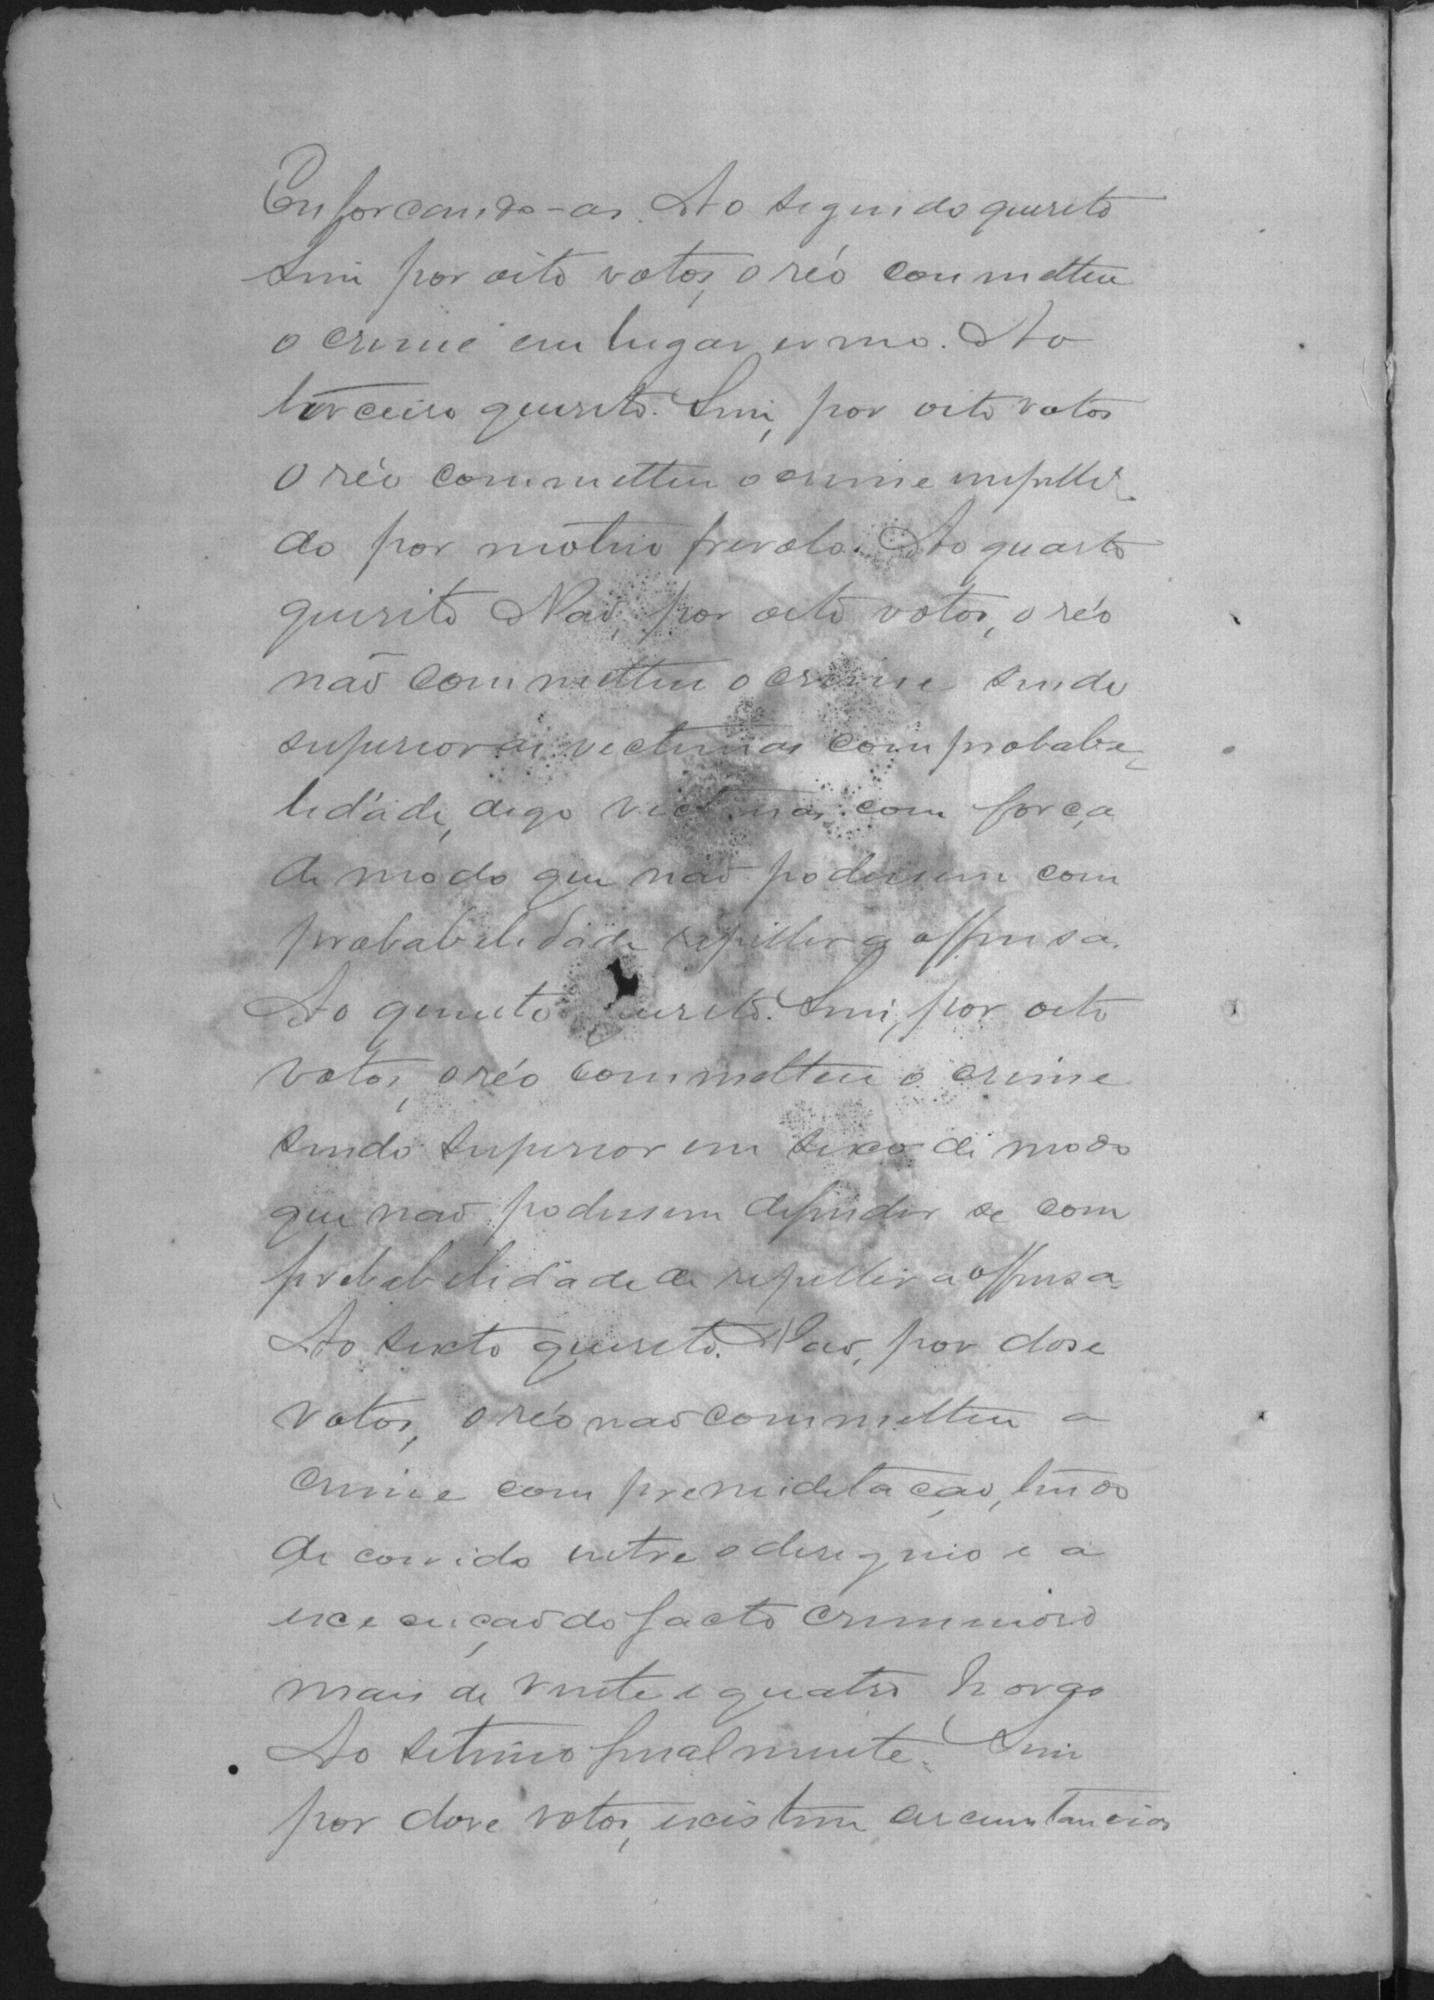 Enforcando-as. Ao segundo quesito
Sim por oito votos, o réo commetteu
o crime em lugar ermo. Ao
terceiro quesito. Sim, por oito votos
o réo commetteu o crime impelli-
do por motivo frivolo. Ao quarto
quesito Não, por oito votos, o réo
não commetteu o crime sendo
superior as victimas com probabi-
lidade, digo victimas com força
de modo que não podessem com
probabilidade repellir a offensa.
Ao quinto quesito. Sim, por oito
votos, o réo commetteu o crime
sendo superior em sexo de modo
que não podessem defender se com
probabilidade de repellir a offensa.
Ao sexto quesito. Não, por dose
votos, o réo não commetteu o
crime com premiditação, tendo
decorrido entre o designio e a
execução do facto criminoso
mais de vinte e quatro horas
Ao setimo finalmente. Sim
por dose votos, existem circumstancias